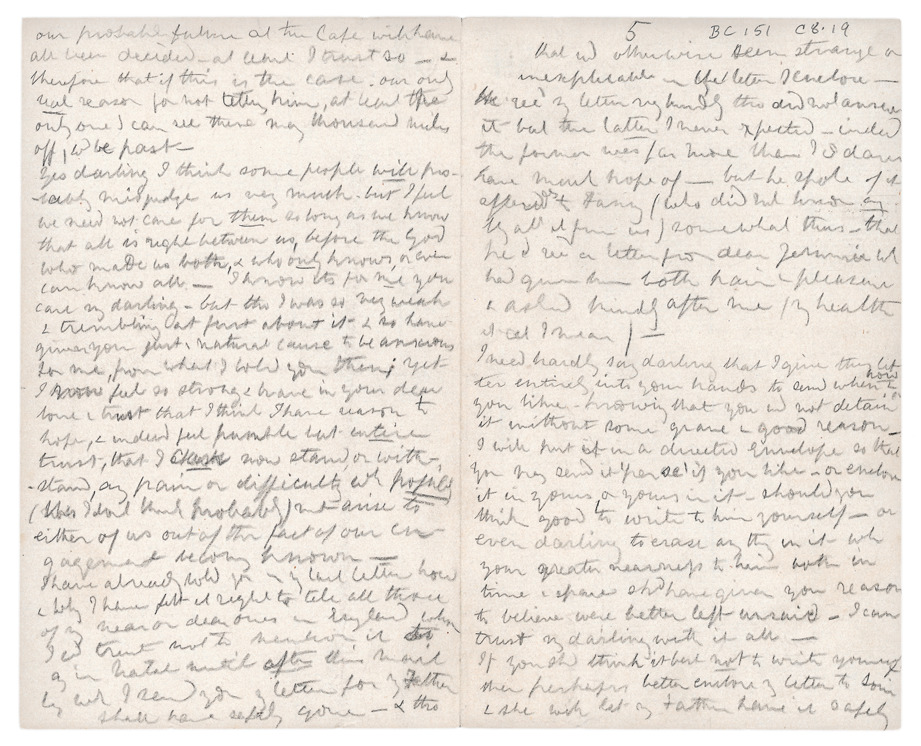 our probable future at the Cape will have
all been decided - at least I trust so - &
therefore that if this is the case our only
real reason for not telling him, at least the
only one I can see there many thousand miles
off, wd be past -
Yes darling I think some people will pro-
-bably misjudge us very much - but I feel
we need not care for them so long as we know
that all is right between us, before the God
who made us both, & who only knows, or ever
can know all - I know it's for me you
care my darling - but tho I was so very weak
& trembling at first about it - & so have
given you just & natural cause to be anxious
for me, from what I told you then; yet
I now feel so strong & brave in your dear
love & trust that I think I have reason to
hope, & indeed feel humble but entire
trust, that I now stand, or with-
-stand, any pain or difficulty wh possibly
(tho I don't think probably) might arise to
either of us out of the fact of our en-
gagement becoming known -
I have already told you in my last letter how
& why I have felt it right to tell all those
of my near or dear ones in England whom
I cd trust not to mention it
in Natal until after this mail
by wh I send you my letter for my Father
shall have safely gone - & tho
5 BC 151 C8.19
that wd otherwise seem strange or
inexplicable in the letter I enclose -
He recd my letter very kindly tho did not answer
it but the latter I never expected - indeed
the former was far more than I'd dared
have much hope of - but he spoke of it
afterwds to Fanny (who did not know any-
thg abt it from us) somewhat thus - that
he'd rec a letter from dear Jemima wh
had given him both pain & pleasure
& asked kindly after me (my health
etcet I mean) -
I need hardly say darling that I give this let-
ter entirely into your hands to send when & how
you like - knowing that you wd not detain
it without some grave & good reason -
I will put it in a directed Envelope so that
you may send it 'per se' if you like - or enclose
it in yours, or yours in it - should you
think good to write to him yourself - or
even darling to erase any thg in it wh
your greater nearness to him both in
time & space shd have given you reason
to believe were better left unsaid - I can
trust my darling with it all -
If you shd think it best not to write yourself
then perhaps better enclose my letter to
& she will let my Father have it safely